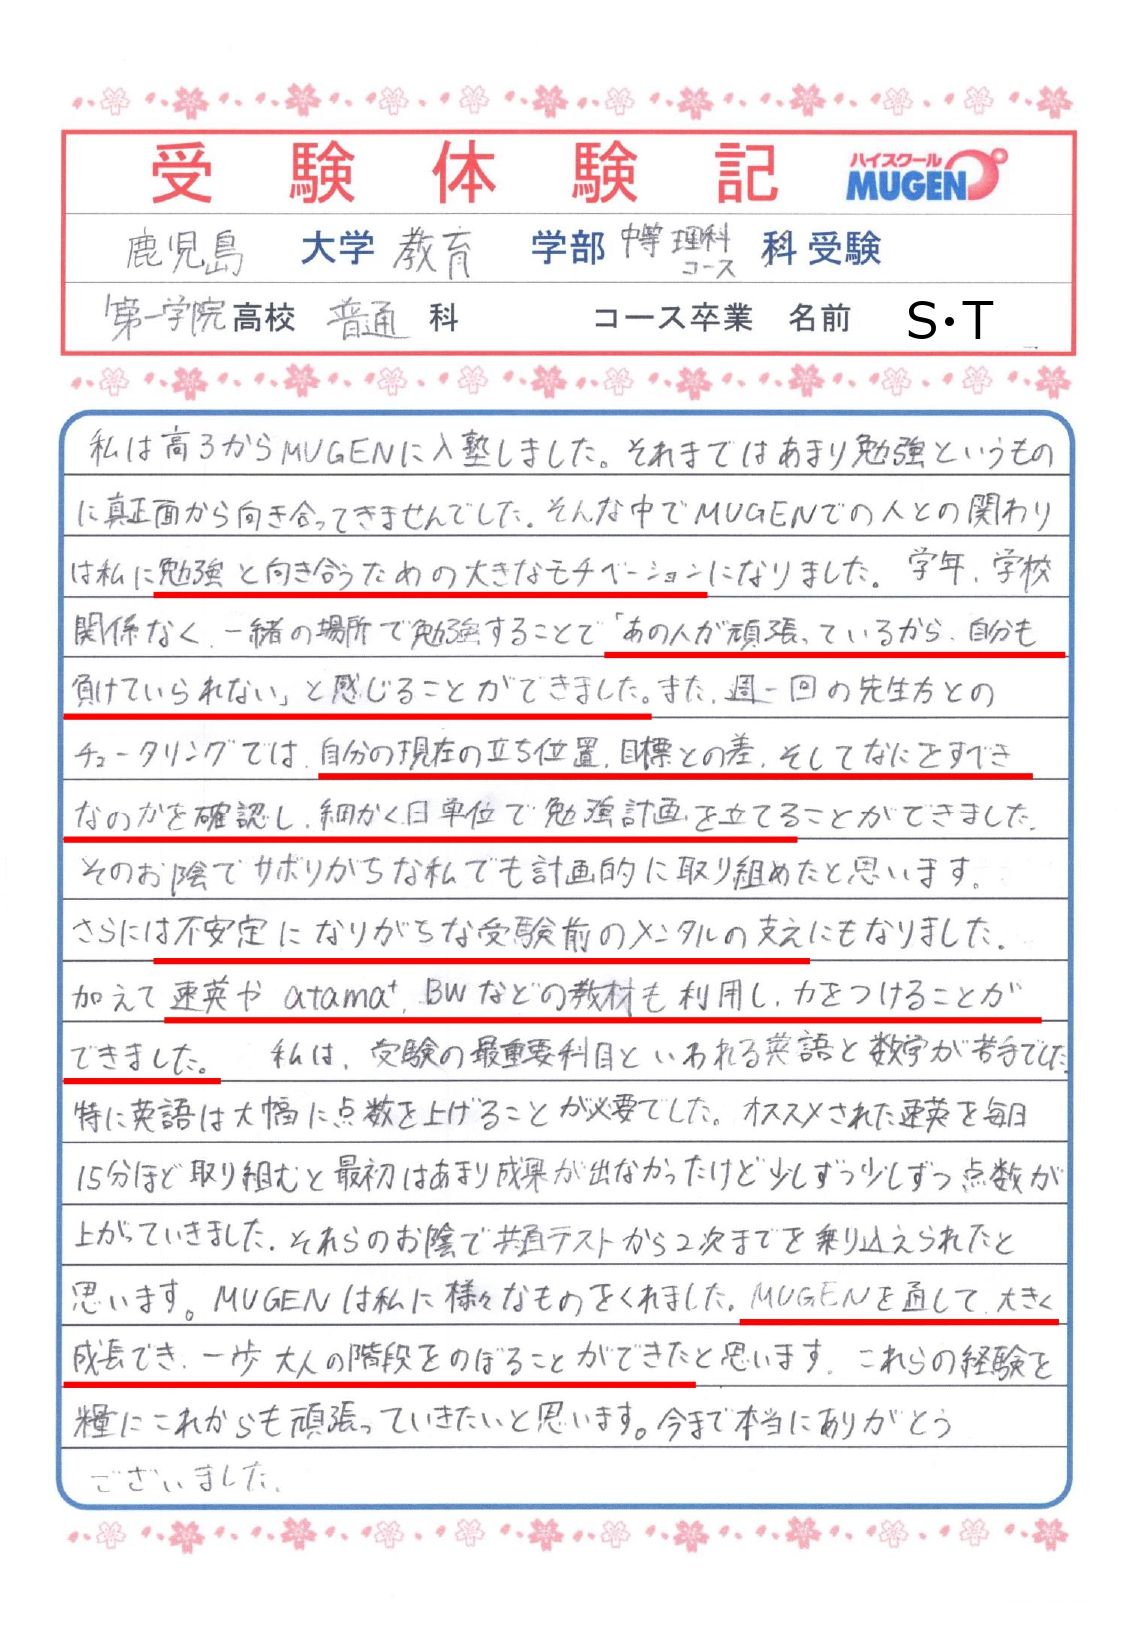 受験体験記 ハイスクール MUGEN
鹿児島 大学 教育 学部 中等理科コース 科 受験
第一学院 高校 普通 科 コース卒業 名前 S・T
私は高3からMUGENに入塾しました。それまではあまり勉強というもの
に真正面から向き合ってきませんでした。そんな中でMUGENでの人との関わり
は私に勉強と向き合うための大きなモチベーションになりました。学年、学校
関係なく、一緒の場所で勉強することで「あの人が頑張っているから、自分も
負けていられない」と感じることができました。また、週一回の先生方との
チュータリングでは、自分の現在の立ち位置、目標との差、そしてなにをすべき
なのかを確認し、細かく日単位で勉強計画を立てることができました。
そのお陰でサボりがちな私でも計画的に取り組めたと思います。
さらには不安定になりがちな受験前のメンタルの支えにもなりました。
加えて速英や atama⁺、BWなどの教材も利用し、力をつけることが
できました。 私は、受験の最重要科目といわれる英語と数学が苦手でした。
特に英語は大幅に点数を上げることが必要でした。オススメされた速英を毎日
15分ほど取り組むと最初はあまり成果が出なかったけど少しずつ少しずつ点数が
上がっていきました。それらのお陰で共通テストから2次までを乗り込えられたと
思います。MUGENは私に様々なものをくれました。MUGENを通して、大きく
成長でき、一歩大人の階段をのぼることができたと思います。これらの経験を
糧にこれからも頑張っていきたいと思います。今まで本当にありがとう
ございました。